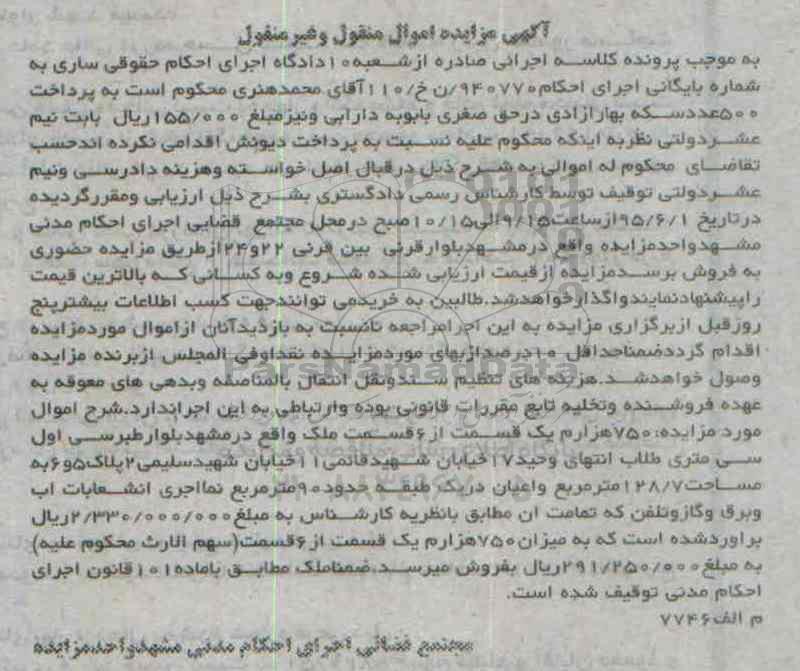 آگهی مزایده اموال منقول وغیرمنقول
به موجب پرونده کلاسه اجرائی صادره ازشعبه۱۰دادگاه اجرای احکام حقوقی ساری به
شماره بایگانی اجرای احکام۹۴۰۷۷۰/ن خ/۱۱۰آقای محمدهنری محکوم است به پرداخت
۵۰۰عددسکه بهارآزادی درحق صغری بابویه دارابی ونیزمبلغ ۱۵۵/۰۰۰ریال بابت نیم
عشردولتی نظربه اینکه محکوم علیه نسبت به پرداخت دیونش اقدامی نکرده اندحسب
تقاضای محکوم له اموالی به شرح ذیل درقبال اصل خواسته وهزینه دادرسی ونیم
عشردولتی توقیف توسط کارشناس رسمی دادگستری بشرح ذیل ارزیابی ومقررگردیده
درتاریخ ۹۵/۶/۱ازساعت۹/۱۵الی۱۰/۱۵صبح درمحل مجتمع قضایی اجرای احکام مدنی
مشهدواحدمزایده واقع درمشهدبلوارقرنی بین قرنی ۲۲و۲۴ازطریق مزایده حضوری
به فروش برسدمزایده ازقیمت ارزیابی شده شروع وبه کسانی که بالاترین قیمت
راپیشنهادنمایندواگذارخواهدشد.طالبین به خریدمی توانندجهت کسب اطلاعات بیشترپنج
روزقبل ازبرگزاری مزایده به این اجرامراجعه تانسبت به بازدیدآنان ازاموال موردمزایده
اقدام گرددضمناحداقل ۱۰درصدازبهای موردمزایده نقداوفی المجلس ازبرنده مزایده
وصول خواهدشد.هزینه های تنظیم سندونقل انتقال بالمناصفه وبدهی های معوقه به
عهده فروشنده وتخلیه تابع مقررات قانونی بوده وارتباطی به این اجراندارد.شرح اموال
مورد مزایده:۷۵۰هزارم یک قسمت از۶قسمت ملک واقع درمشهدبلوارطبرسی اول
سی متری طلاب انتهای وحید۱۷خیابان شهیدقائمی۱۱خیابان شهیدسلیمی۲پلاک۵و۶به
مساحت۱۲۸/۷مترمربع واعیان دریک طبقه حدود۹۰مترمربع نماآجری انشعابات اب
وبرق وگازوتلفن که تمامت ان مطابق بانظریه کارشناس به مبلغ۲/۳۳۰/۰۰۰/۰۰۰ریال
براوردشده است که به میزان۷۵۰هزارم یک قسمت از۶قسمت(سهم الارث محکوم علیه)
به مبلغ۲۹۱/۲۵۰/۰۰۰ریال بفروش میرسد.ضمناملک مطابق باماده۱۰۱قانون اجرای
احکام مدنی توقیف شده است.
م الف۷۷۴۶
مجتمع قضائی اجرای احکام مدنی مشهدواحدمزایده
ParsNamadData